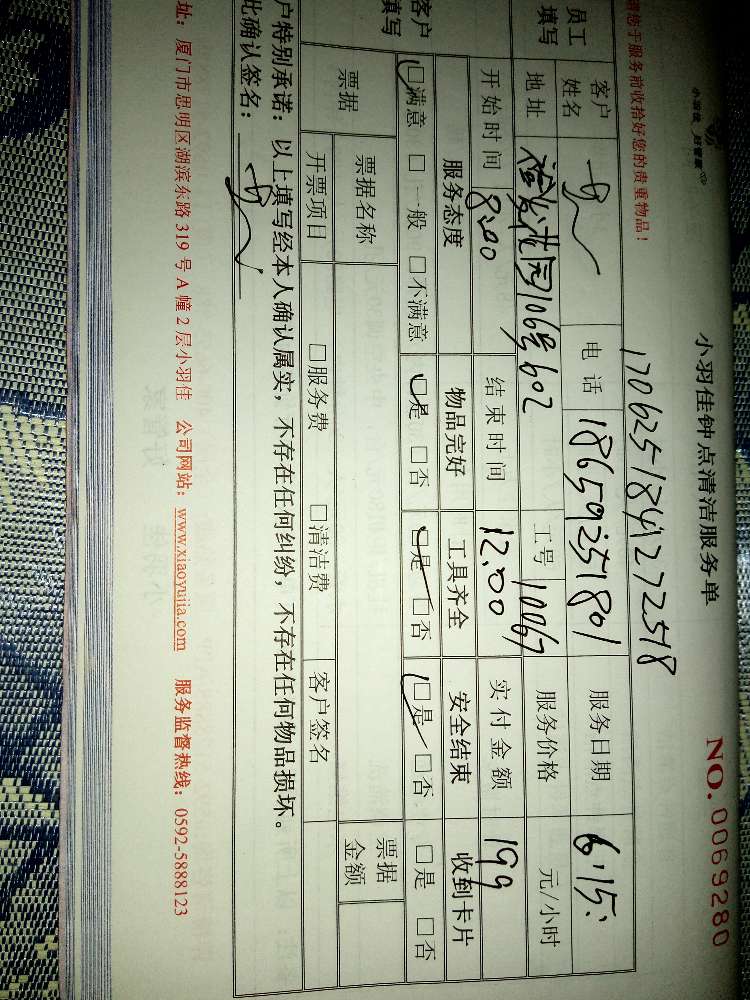 小羽佳钟点清洁服务单
NO. 0069280
17062518412272518
请您于服务前收拾好您的贵重物品！
员工填写 客户姓名 电话 18659251801 服务日期 6.15.
地址 花园106号602 工号 10067 服务价格 元/小时
开始时间 8:00 结束时间 12:00 实付金额 199
客户填写 服务态度 物品完好 工具齐全 安全结束 收到卡片
□满意 □一般 □不满意 □是 □否 □是 □否 □是 □否 □是 □否
票据 票据名称 票据金额
开票项目 □服务费 □清洁费 客户签名
户特别承诺：以上填写经本人确认属实，不存在任何纠纷，不存在任何物品损坏。
此确认签名：
址：厦门市思明区湖滨东路 319 号 A 幢 2 层小羽佳 公司网站：www.xiaoyujia.com 服务监督热线：0592-5888123